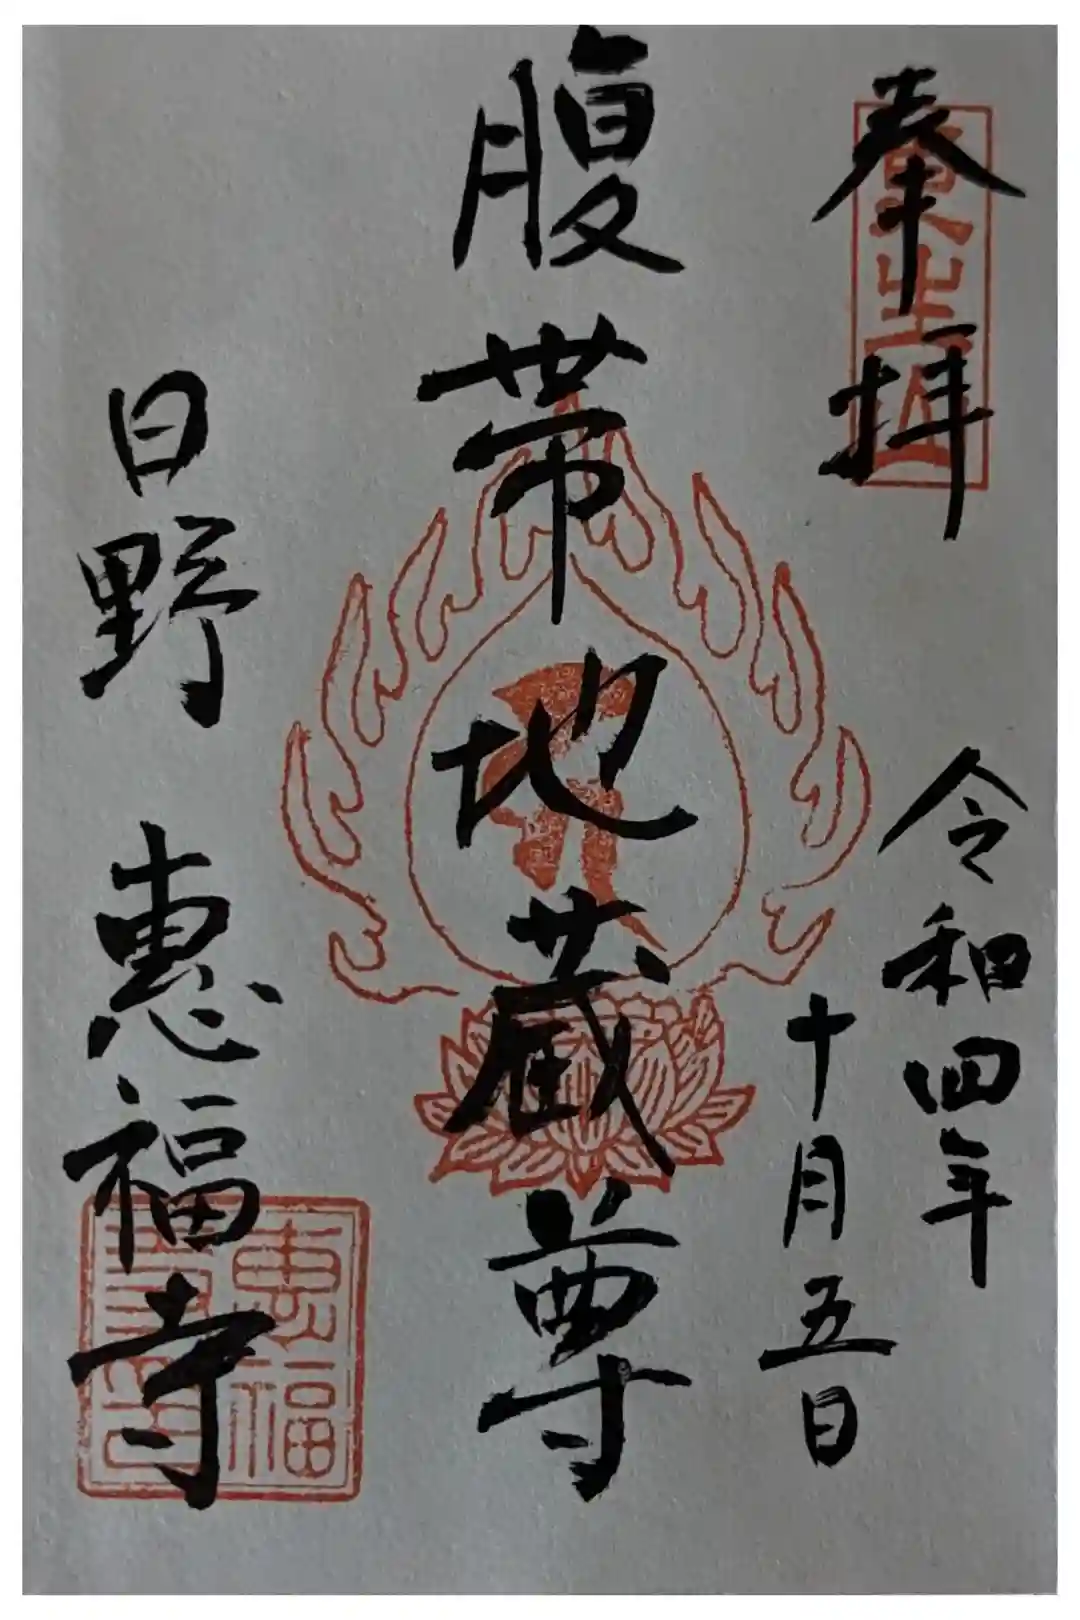 奉拝
令和四年
十月五日
腹帯地蔵尊
日野 恵福寺